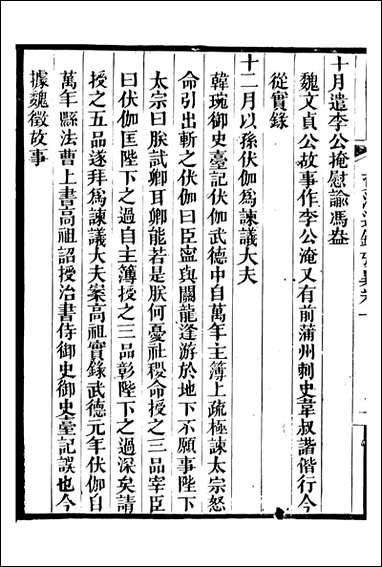 十月遣李公掩慰諭馮盎
魏文貞公故事作李公淹又有前蒲州刺史韋叔諧偕行今
從實錄
十二月以孫伏伽爲諫議大夫
韓琬御史臺記伏伽武德中自萬年主簿上疏極諫太宗怒
命引出斬之伏伽曰臣寧與關龍逢游於地下不願事陛下
太宗曰朕試卿耳卿能若是朕何憂社稷命授之三品宰臣
曰伏伽匡陛下之過自主簿授之三品彰陛下之過深矣請
授之五品遂拜爲諫議大夫案高祖實錄武德元年伏伽自
萬年縣法曹上書高祖詔授治書侍御史御史臺記誤也今
據魏徵故事